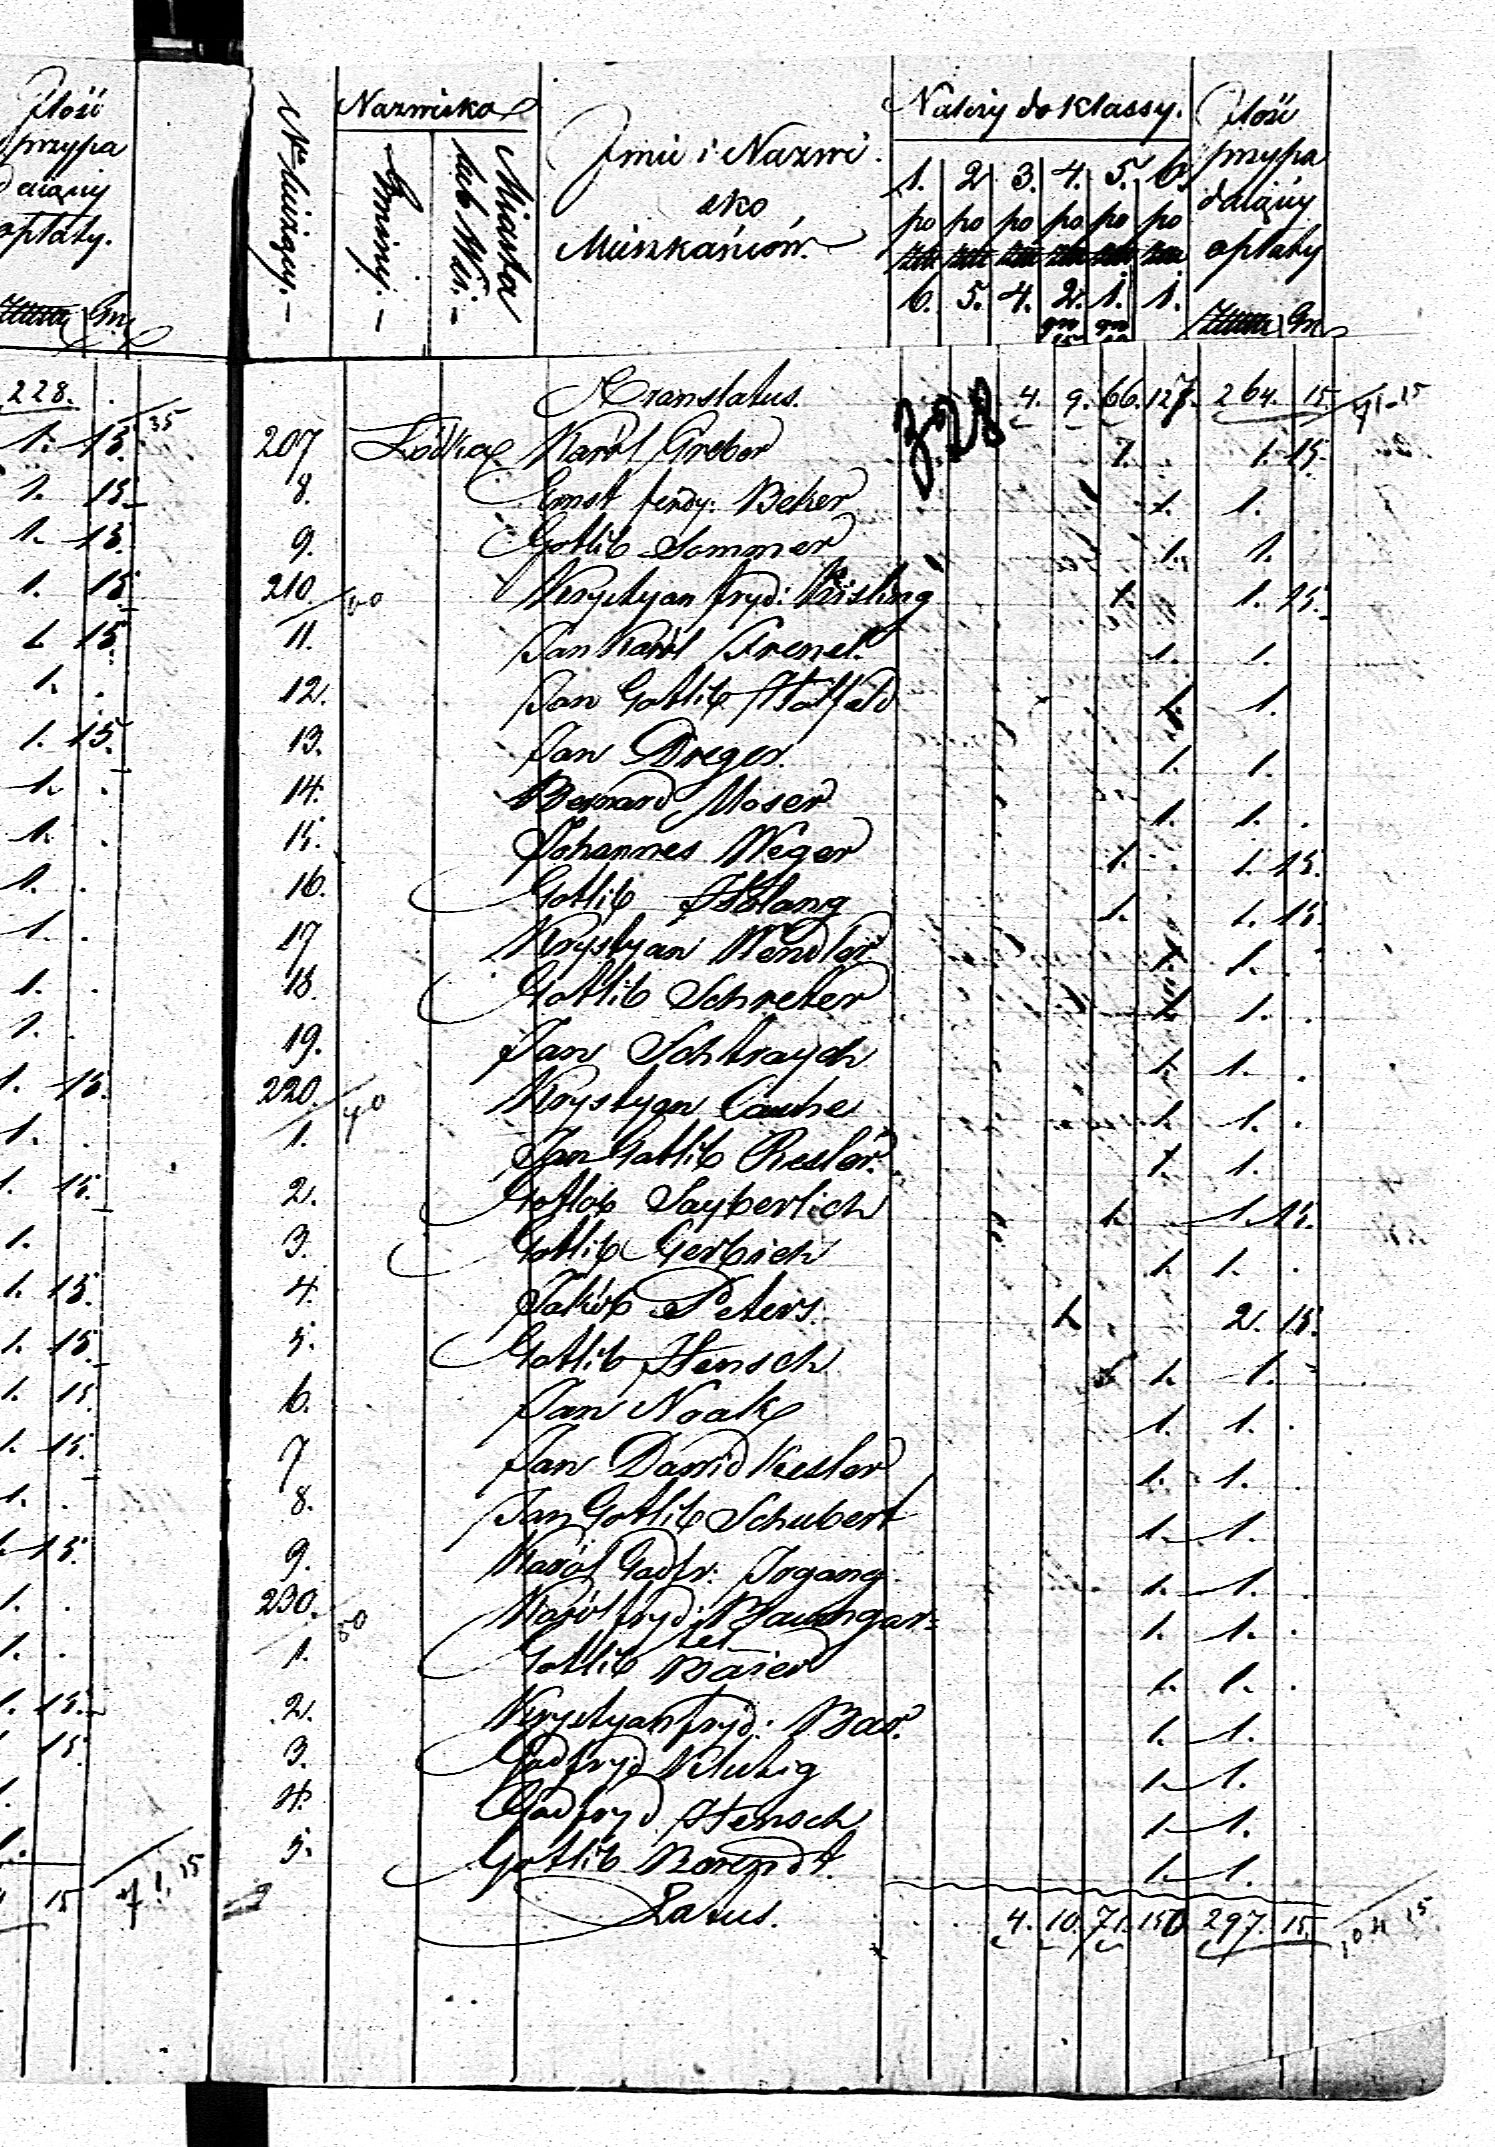 Ilość
przypa
daiącéy
opłaty.
Gr.
228.
1. 15.
1. 15.
1. 15.
1. 15.
1. 15.
1. .
1. 15.
1. .
1. .
1. .
1. .
1. .
1. .
1. 15.
1. .
1. 15.
1.
1. 15.
1. 15.
1. 15.
1. 15.
1. .
1. 15.
1. .
1. .
1. 15.
15.
1.
1.
15
71. 15
Nazwisko
Gminy.
Miasta
lub Wsi.
Imie i Nazwi
sko
Mieszkańców.
Należy do Klassy.
1. 2. 3. 4. 5. 6.
po po po po po po
6. 5. 4. 2. 1. 1.
gr gr
15
Ilość
przypa
daiącéy
opłaty
Gr.
Translatus. 4. 9. 66. 127. 264. 15. 71-15
328
207 Łódka Karól Greber 1. 1. 15.
8. Ernst ferdy: Beker 1. 1.
9. Gotlib Sommer 1. 1.
210 Krystyan fryd: Kisling 1. 1. 15.
11. Jan Karól Frenel. 1. 1.
12. Jan Gotlib Hatfeld 1. 1.
13. Jan Dreger. 1. 1.
14. Bernard Moser 1. 1. .
15. Johannes Weger 1. 1. 15.
16. Gotlib 1. 1. 15.
17 Krystyan Wendler 1. 1. .
18. Gotlib Schreter 1. 1. .
19. Jan Schtraych 1. 1. .
220. Krystyan 1. 1. .
1. Jan Gotlib Resler. 1. 1.
2. Gotlob Sayberlich 1. 1. 15.
3. Gotlib Gerbich 1. 1. .
4. Jakób Peters. 1. 2. 15.
5. Gotlib Hensch 1. 1.
6. Jan Noak 1. 1. .
7 Jan Dawid Kesler 1. 1. .
8. Jan Gotlib Schubert 1. 1.
9. Karól Godfr: Jrgang 1. 1. .
230. Karól fryd: Baumgar=
tel 1. 1. .
1. Gotlib Baier 1. 1. .
2. Krystyan fryd: Bar. 1. 1.
3. Godfryd 1. 1.
4. Godfryd Hensch 1. 1.
5. Gotlib Barendt. 1. 1.
Latus. 4. 10. 71. 150 297. 15. 104 15